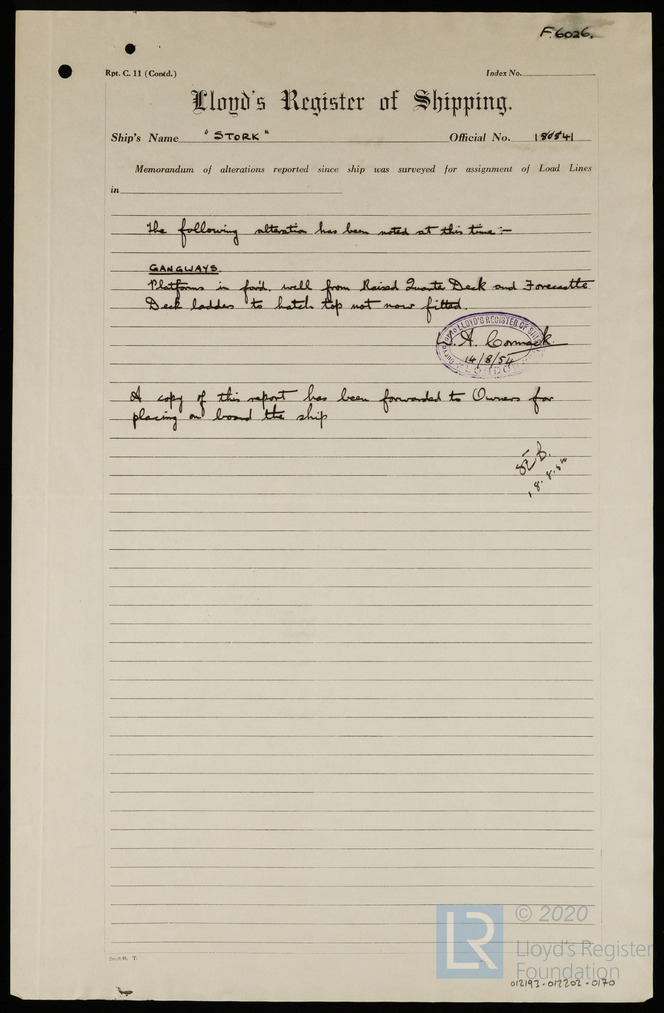 F.6026.
Rpt. C. 11 (Contd.)
Index No.
Lloyd's Register of Shipping.
Ship's Name "STORK"
Official No. 180541
Memorandum of alterations reported since ship was surveyed for assignment of Load Lines
in
The following alteration has been noted at this time:-
GANGWAYS.
Platforms in ford. well from Raised Quarter Deck and Forecastle
Deck ladders to hatch top not now fitted.
LLOYD'S REGISTER OF
A. Cormack
14/8/54
LONDON
A copy of this report has been forwarded to Owners for
placing on board the ship
18.8.54
LR
© 2020
Lloyd's Register
Foundation
012193-012202-0170